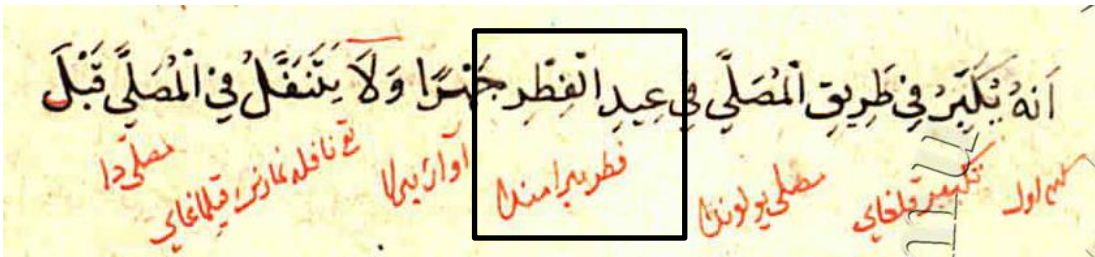 اَنهُ يُكَبِّرُ فِي طَرِيقِ الْمُصَلَّي فِي عِيدِ الْفِطْرِ جَهْرًا وَلَا يَتَنَفَّلُ فِي الْمُصَلَّي قَبْلَ
اول تكبير قلغاى مصلى يولوندا فطر بيرامندا آواز بيرلا نافله نمازين قيلماغاي مصلّى دا